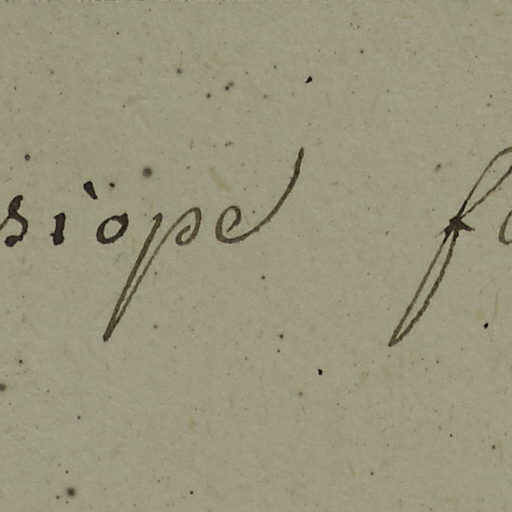 siope f